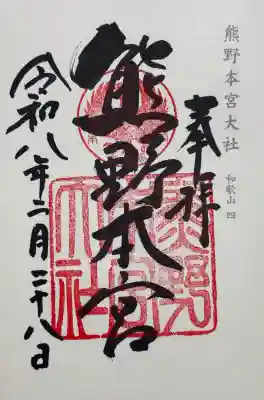 熊野本宮大社
和歌山 四
奉拝
熊野本宮
令和八年二月二十八日